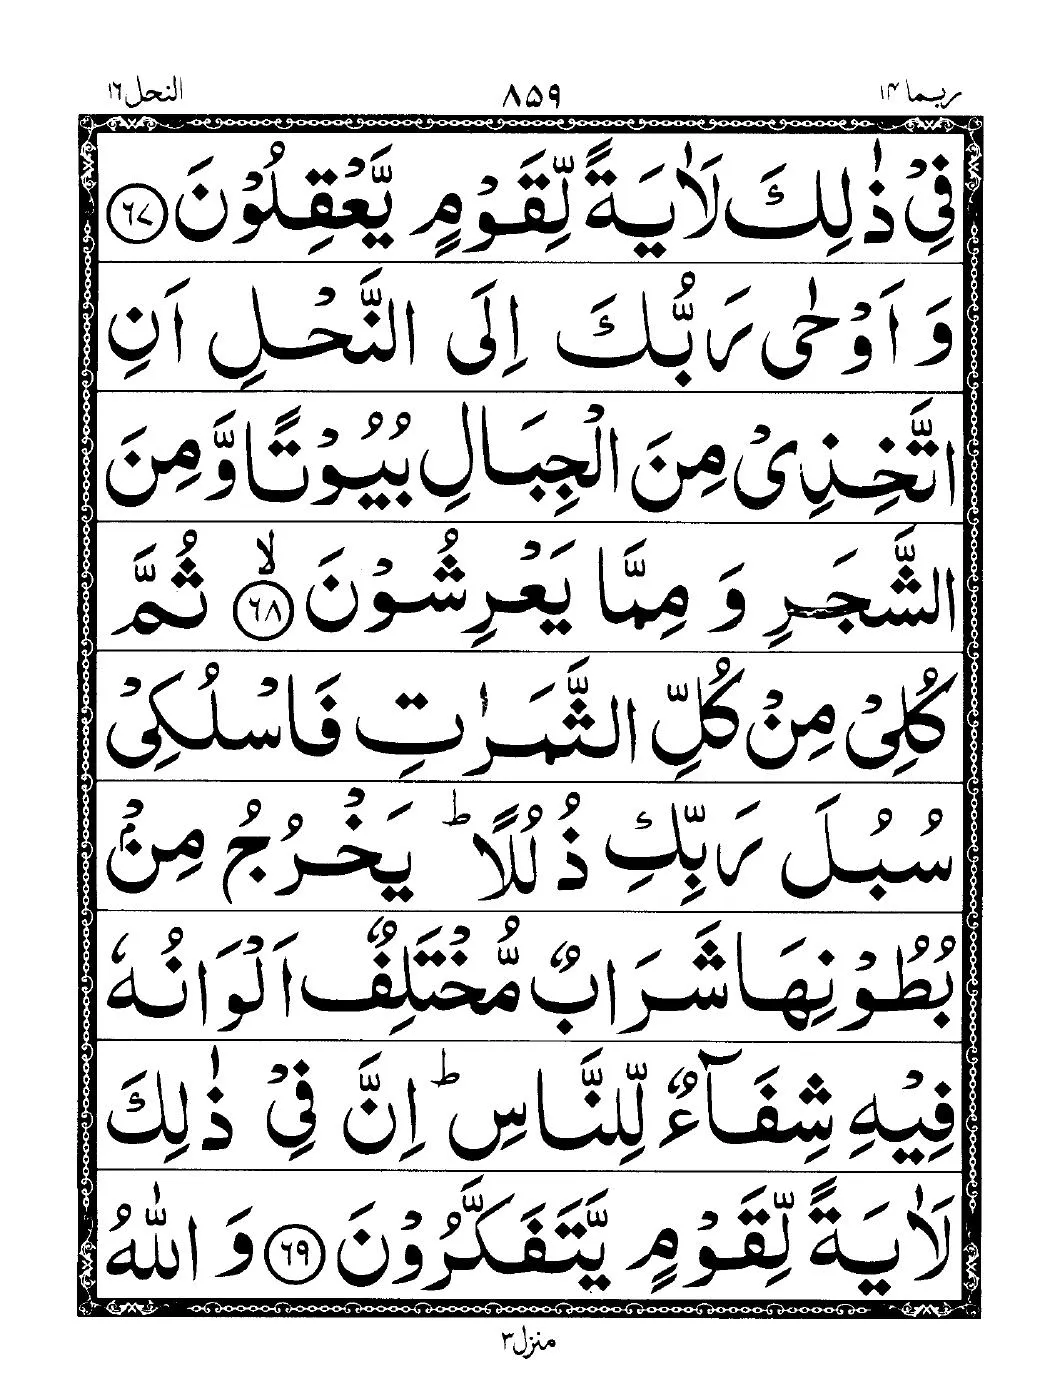 ربما ۱۴
۸۵۹
النحل ۱۶
فِیْ ذٰلِكَ لَاٰیَةً لِّقَوْمٍ یَّعْقِلُوْنَ ﴿۶۷﴾
وَ اَوْحٰی رَبُّكَ اِلَی النَّحْلِ اَنِ
اتَّخِذِیْ مِنَ الْجِبَالِ بُیُوْتًا وَّ مِنَ
الشَّجَرِ وَ مِمَّا یَعْرِشُوْنَ ﴿۶۸﴾ۙ ثُمَّ
كُلِیْ مِنْ كُلِّ الثَّمَرٰتِ فَاسْلُكِیْ
سُبُلَ رَبِّكِ ذُلُلًا ؕ یَخْرُجُ مِنْۢ
بُطُوْنِهَا شَرَابٌ مُّخْتَلِفٌ اَلْوَانُهٗ
فِیْهِ شِفَآءٌ لِّلنَّاسِ ؕ اِنَّ فِیْ ذٰلِكَ
لَاٰیَةً لِّقَوْمٍ یَّتَفَكَّرُوْنَ ﴿۶۹﴾ وَ اللّٰهُ
منزل ۳